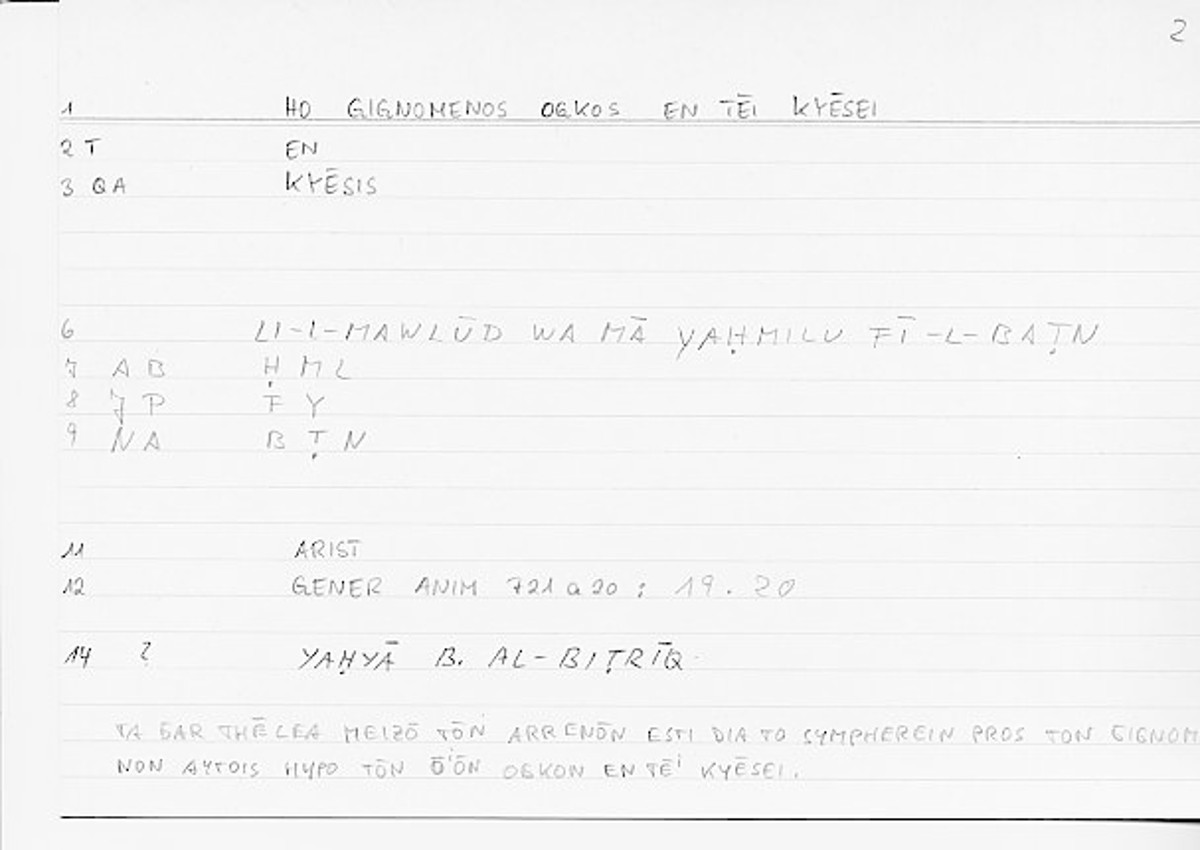 2
1 HO GIGNOMENOS OGKOS EN TĒI KYĒSEI
2 T EN
3 QA KYĒSIS
6 LI-L-MAWLŪD WA MĀ YAḤMILU FĪ-L-BAṬN
7 AB Ḥ M L
8 JP F Y
9 NA B Ṭ N
11 ARIST
12 GENER ANIM 721 a 20 : 19.20
14 ? YAḤYĀ B. AL-BIṬRĪQ
TA GAR THĒLEA MEIZŌ TŌN ARRENŌN ESTI DIA TO SYMPHEREIN PROS TON GIGNOM
NON AYTOIS HYPO TŌN ŌⁱŌN OGKON EN TĒⁱ KYĒSEI.